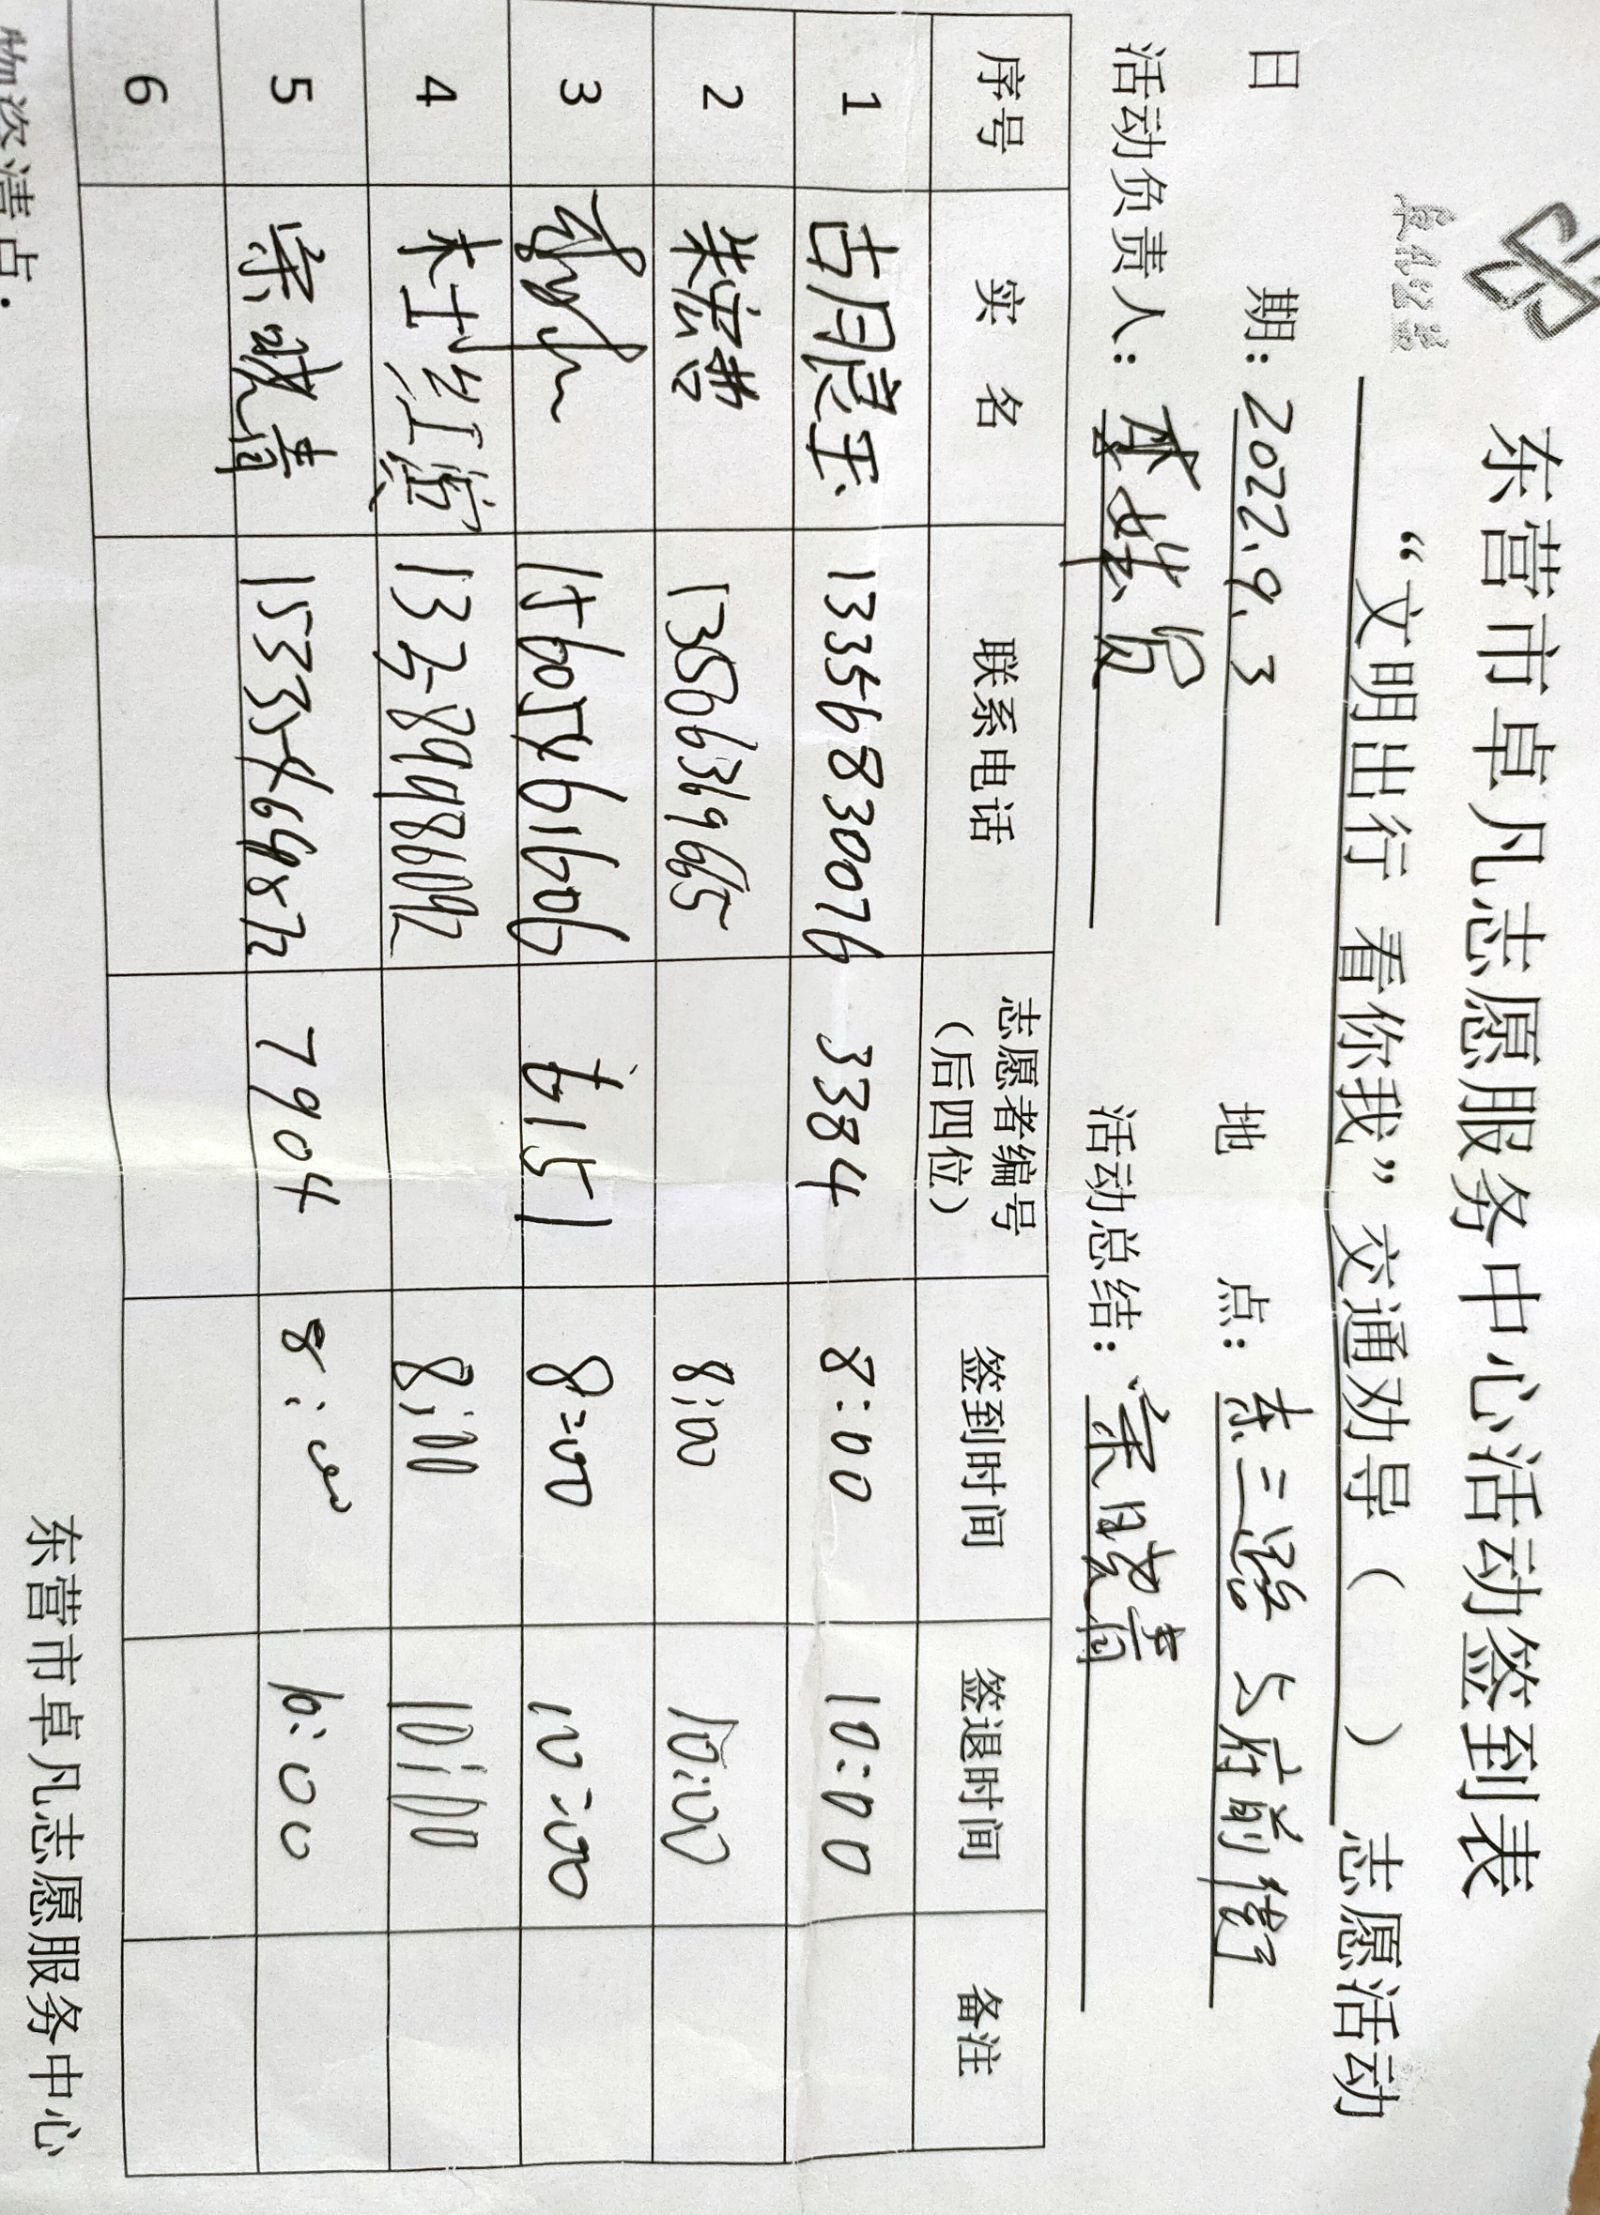 卓凡公益
东营市卓凡志愿服务中心活动签到表
“文明出行 看你我”交通劝导（ ）志愿活动
日 期：2022.9.3 地 点：东三路与府前街
活动负责人： 活动总结：宗晓青
序号 实 名 联系电话 志愿者编号（后四位） 签到时间 签退时间 备注
1 胡良玉 13356830076 3384 8:00 10:00
2 朱宏普 13563619665 8:00 10:00
3 15605461606 6151 8:00 10:00
4 杜红滨 8:00 10:00
5 宗晓青 15335469872 7904 8:00 10:00
6
物资清点：
东营市卓凡志愿服务中心